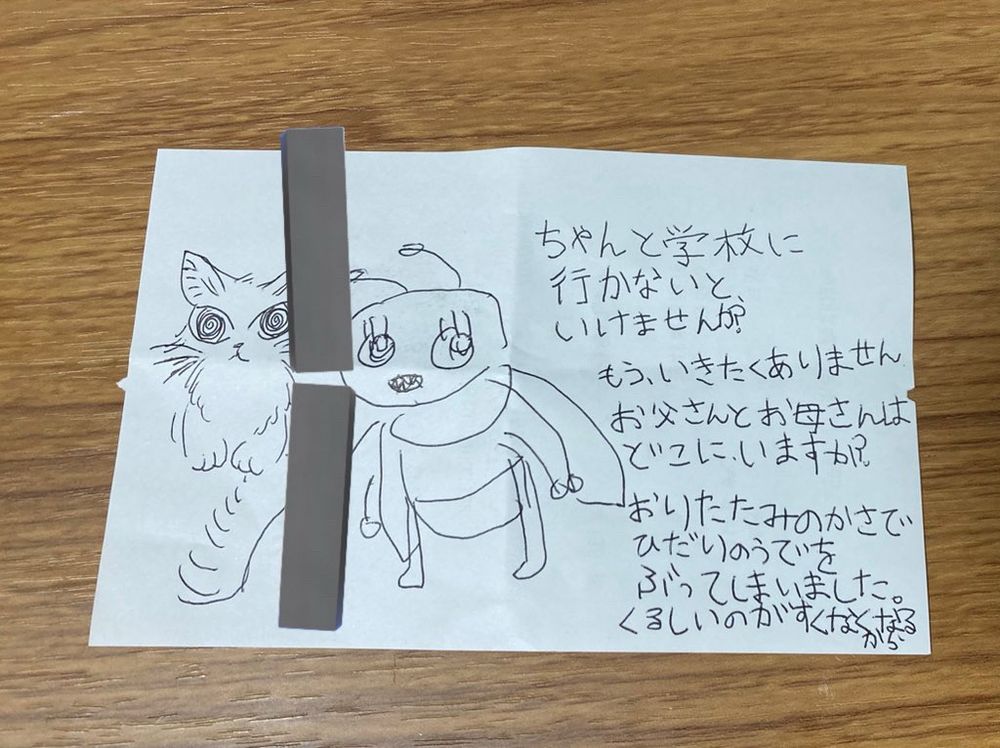 ちゃんと学校に
行かないと、
いけませんか?
もう、いきたくありません
お父さんとお母さんは
どこに、いますか?
おりたたみのかさで
ひだりのうでを
ぶってしまいました。
くるしいのがすくなくなる
から